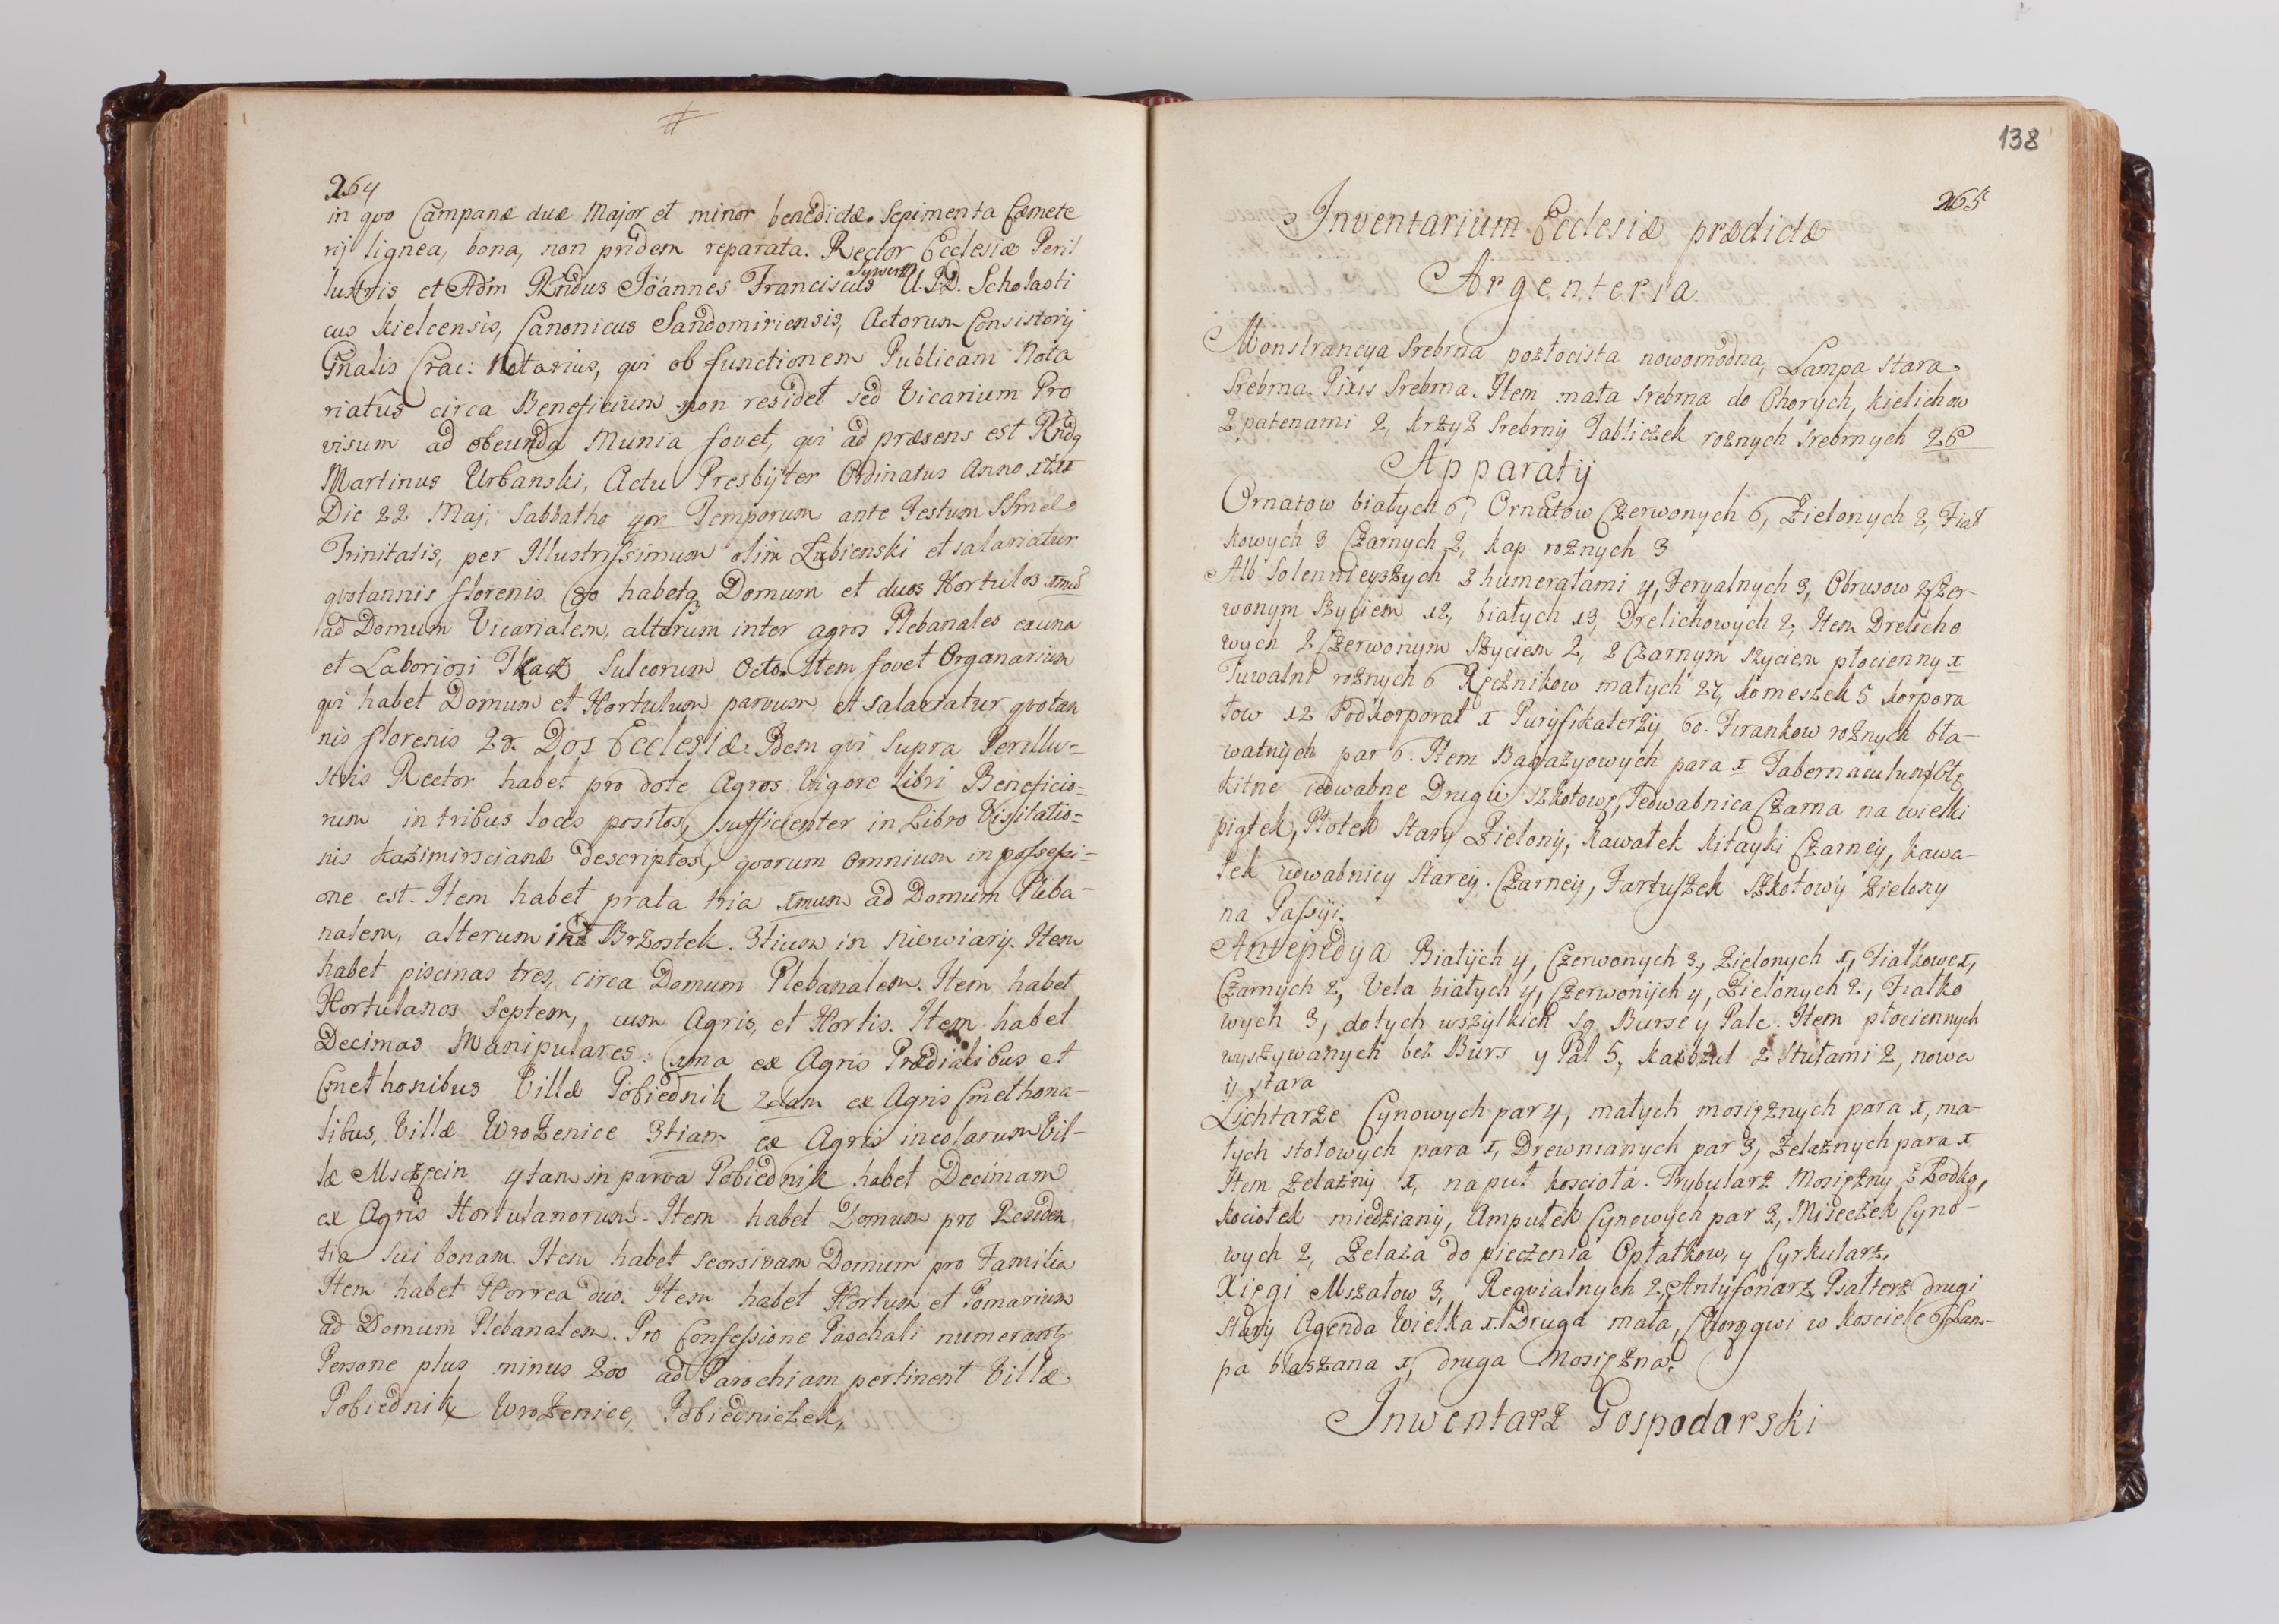 264
in qvo Campanæ duæ Major et minor benedictæ. Sepimenta Cœmete
rij lignea, bona, non pridem reparata. Rector Ecclesiæ Peril
lustris et Adm Rndus Joannes Franciscus U.J.D. Scholasti
cus Kielcensis, Canonicus Sandomiriensis, Actorum Consistorij
Gnalis Crac: Notarius, qvi ob functionem Publicam Nota
riatûs circa Beneficium non residet sed Vicarium Pro
visum ad obeunda Munia fovet, qvi ad præsens est Rndq
Martinus Urbanski, Actu Presbyter Ordinatus Anno
Die 22 Maj, Sabbatho 4or Temporum ante Festum SSmæ
Trinitatis, per Illustrissimum olim Łubienski et salariatur
qvotannis florenis habetq Domum et duos Hortulos xmus
ad Domum Vicarialem, alterum inter agros Plebanales ex una
et Laboriosi Tkacz Sulcorum Octo. Item fovet Organarium
qvi habet Domum et Hortulum parvum, et salariatur qvotan
nis florenis 28. Dos Ecclesiæ. Idem qvi supra Perillu=
stris Rector habet pro dote Agros Vigore Libri Beneficio=
rum in tribus locis positos, sufficienter in Libro Visitatio=
nis Kazimirscianæ descriptos, qvorum omnium in possessi=
one est. Item habet prata tria xmum ad Domum Pleba-
nalem, alterum Brzostek. 3tium in Niewiary. Item
habet piscinas tres, circa Domum Plebanalem. Item habet
Hortulanos Septem, cum Agris, et Hortis. Item habet
Decimas Manipulares: una ex Agris Prædialibus et
Cmethonibus Villæ Pobiednik 2dam ex Agris Cmethona-
libus, Villæ Wrożenice 3tiam ex Agris incolarum Vil-
læ Msczęcin 4tam in parva Pobiednik habet Decimam
ex Agris Hortulanorum. Item habet Domum pro Residen
tia sui bonam. Item habet seorsivam Domum pro Familia
Item habet Horrea duo. Item habet Hortum et Pomarium
ad Domum Plebanalem. Pro Confessione Paschali numerantr
Personæ plus minus 200 ad Parochiam pertinent Villæ
Pobiednik Wrożenice, Pobiedniczek,
138
265
Inventarium Ecclesiæ prædictæ
Argenteria
Monstrancya Srebrna pozłocista nowomodna, Lampa stara
Srebrna. Pixis Srebrna. Item mała srebrna do Chorych, Kielichow
z patenami 2, Krzyż Srebrny Tabliczek roznych srebrnych 26
Apparaty
Ornatow białych 6, Ornatow Czerwonych 6, Zielonych 2, Fiał
kowych 3 Czarnych 2, kap roznych 3
Alb Solennieyszych z humerałami 4, Feryalnych 3, Obrusow z Czer-
wonym szyciem 12, białych 13, Drelichowych 2, Item Drelicho
wych z Czerwonym Szyciem 2, z Czarnym szyciem płocienny x
Tuwalni rożnych 6 Ręcznikow małych 27, Komeszek 5 Korpora
łow 12 Podkorporał x Puryfikaterzy 60. Firankow rożnych bła-
watnych par 6. Item Bagazyowych para x Tabernaculum błę
kitne iedwabne Drugie szkotowe, Jedwabnica Czarna na wielki
piątek, Płotek Stary Zielony, Kawałek Kitayki Czarney, kawa-
łek iedwabnicy Starey. Czarney, Fartuszek szkotowy zielony
na Passyi.
Antepedya Białych 4, Czerwonych 3, Zielonych x, Fiałkowe x,
Czarnych 2, Vela białych 4, Czerwonych 4, Zielonych 2, Fiałko
wych 3, do tych wszytkich są Burse y Pale. Item płociennych
wyszywanych bez Burs y Pal 5, Kazbzul z Stułami 2, nowa
y stara
Lichtarze Cynowych par 4, małych mosiężnych para x, ma-
łych stołowych para x, Drewnianych par 3, żelaznych para x
Item żelazny x, na puł koscioła. Trybularz Mosiężny z Łodką,
Kociołek miedziany, Ampułek Cynowych par 2, Miseczek Cyno-
wych 2, Żelaza do pieczenia Opłatkow, y Cyrkularz.
Xięgi Mszałow 3, Reqvialnych 2, Antyfonarz, Psałterz drugi
stary Agenda Wielka x. Druga mała, Chorągwi w Kosciele 6, Lam-
pa blaszana x, druga Mosiężna.
Inwentarz Gospodarski